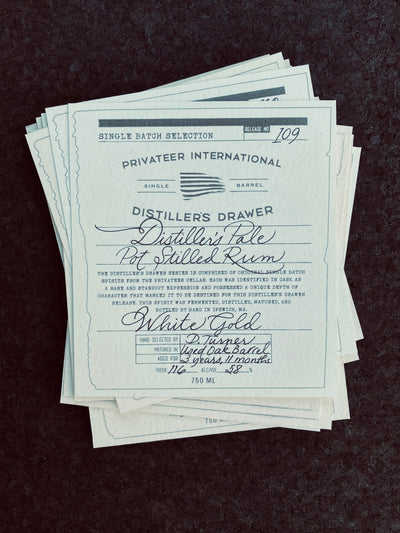 SINGLE BATCH SELECTION
RELEASE NO 109
PRIVATEER INTERNATIONAL
SINGLE BARREL
DISTILLER'S DRAWER
Distiller's Pale
Pot Stilled Rum
THE DISTILLER'S DRAWER SERIES IS COMPRISED OF ORIGINAL SINGLE BATCH
SPIRITS FROM THE PRIVATEER CELLAR. EACH WAS IDENTIFIED IN CASK AS
A RARE AND STANDOUT EXPRESSION AND POSSESSED A UNIQUE DEPTH OF
CHARACTER THAT WARRED IT TO BE DESTINED FOR THIS DISTILLER'S DRAWER
RELEASE. THIS SPIRIT WAS FERMENTED, DISTILLED, MATURED, AND
BOTTLED BY HAND IN IPSWICH, MA.
White Gold
HAND SELECTED BY D. Turner
MATURED IN Used Oak Barrel
AGED FOR 3 years, 11 months
PROOF 116 ALC/VOL 58 %
750 ML